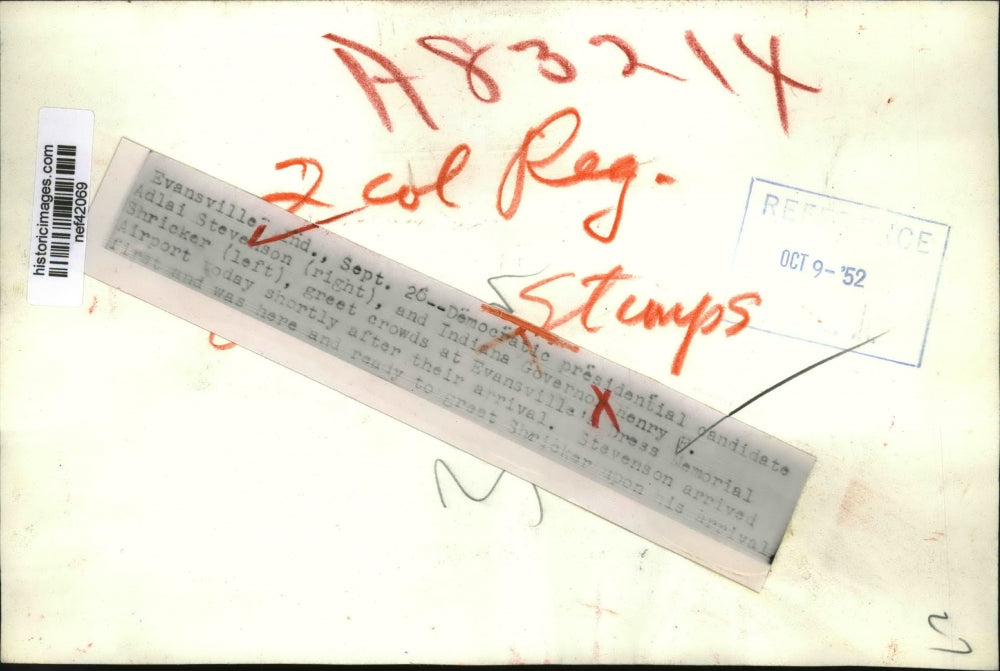 A83214
2 col Reg.
Stumps
historicimages.com
nef42069
OCT 9-'52
Evansville, Ind., Sept. 26--Democratic presidential candidate
Adlai Stevenson (right), and Indiana Governor Henry F.
Shricker (left), greet crowds at Evansville's Dress Memorial
Airport today shortly after their arrival. Stevenson arrived
first and was here and ready to greet Shricker upon his arrival